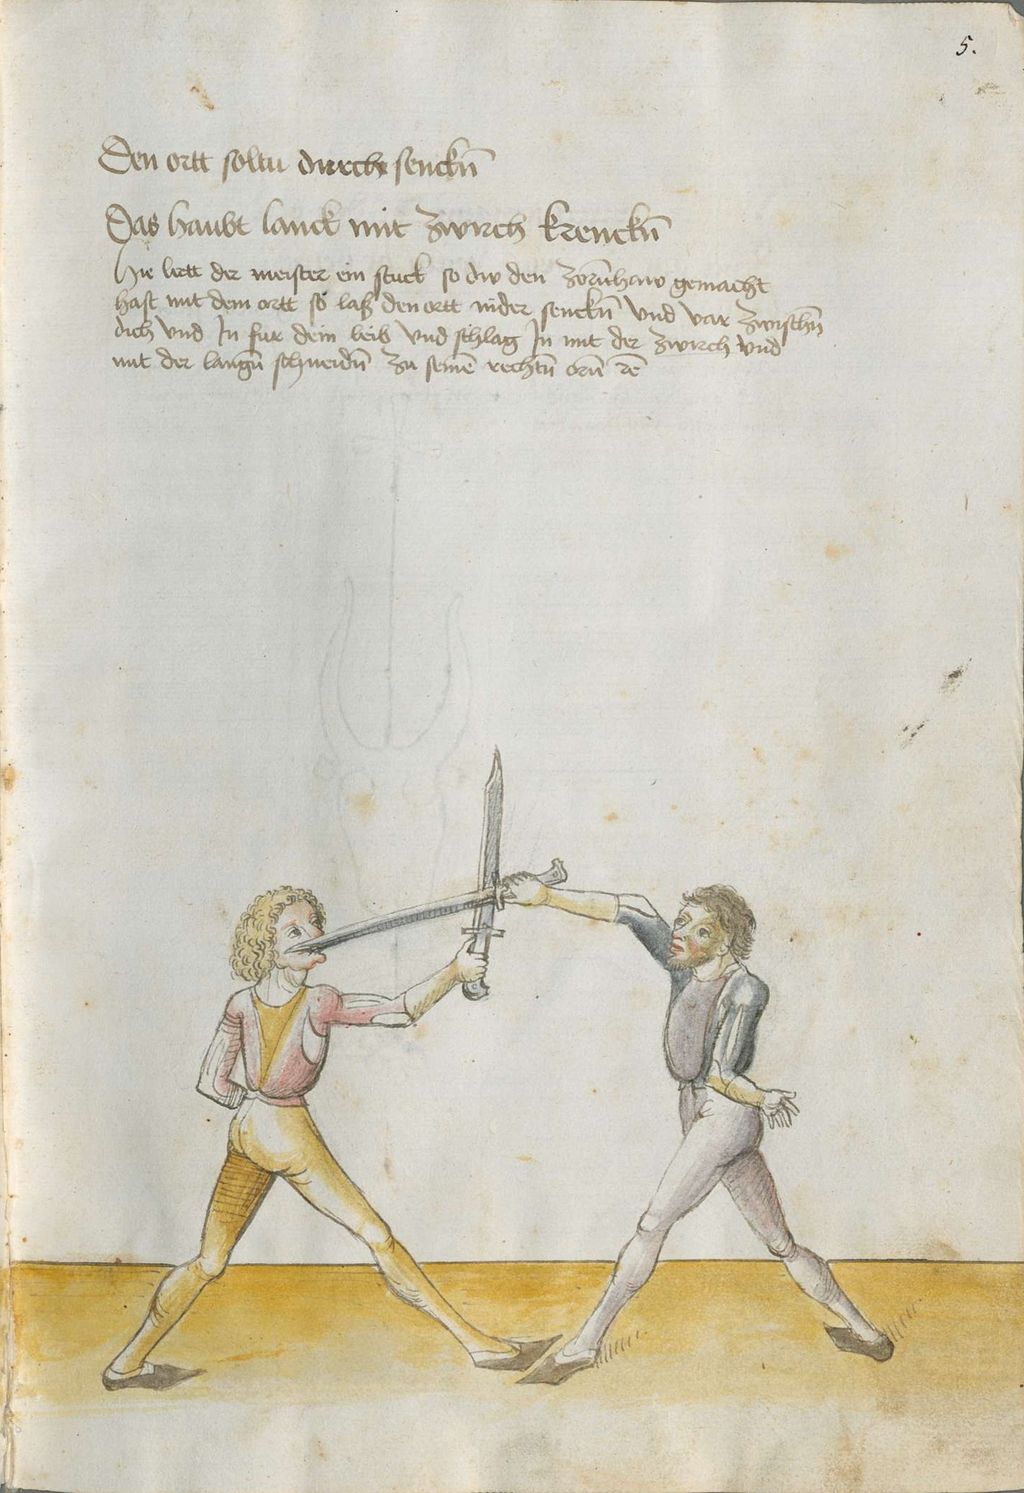 5.
Den ortt soltu durch senckn̄
Das haubt lanck mit zwirch krenckn̄
Hie lertt der meister ein stuck so dw den zorn̄haw gemacht
hast mit dem ortt so laß den ortt nider senckn̄ vnd var zwischn̄
dich vnd In fur dein leib vnd schlag In mit der zwirch vnd
mit der langn̄ schneidn̄ zu seinē rechtn̄ orn̄